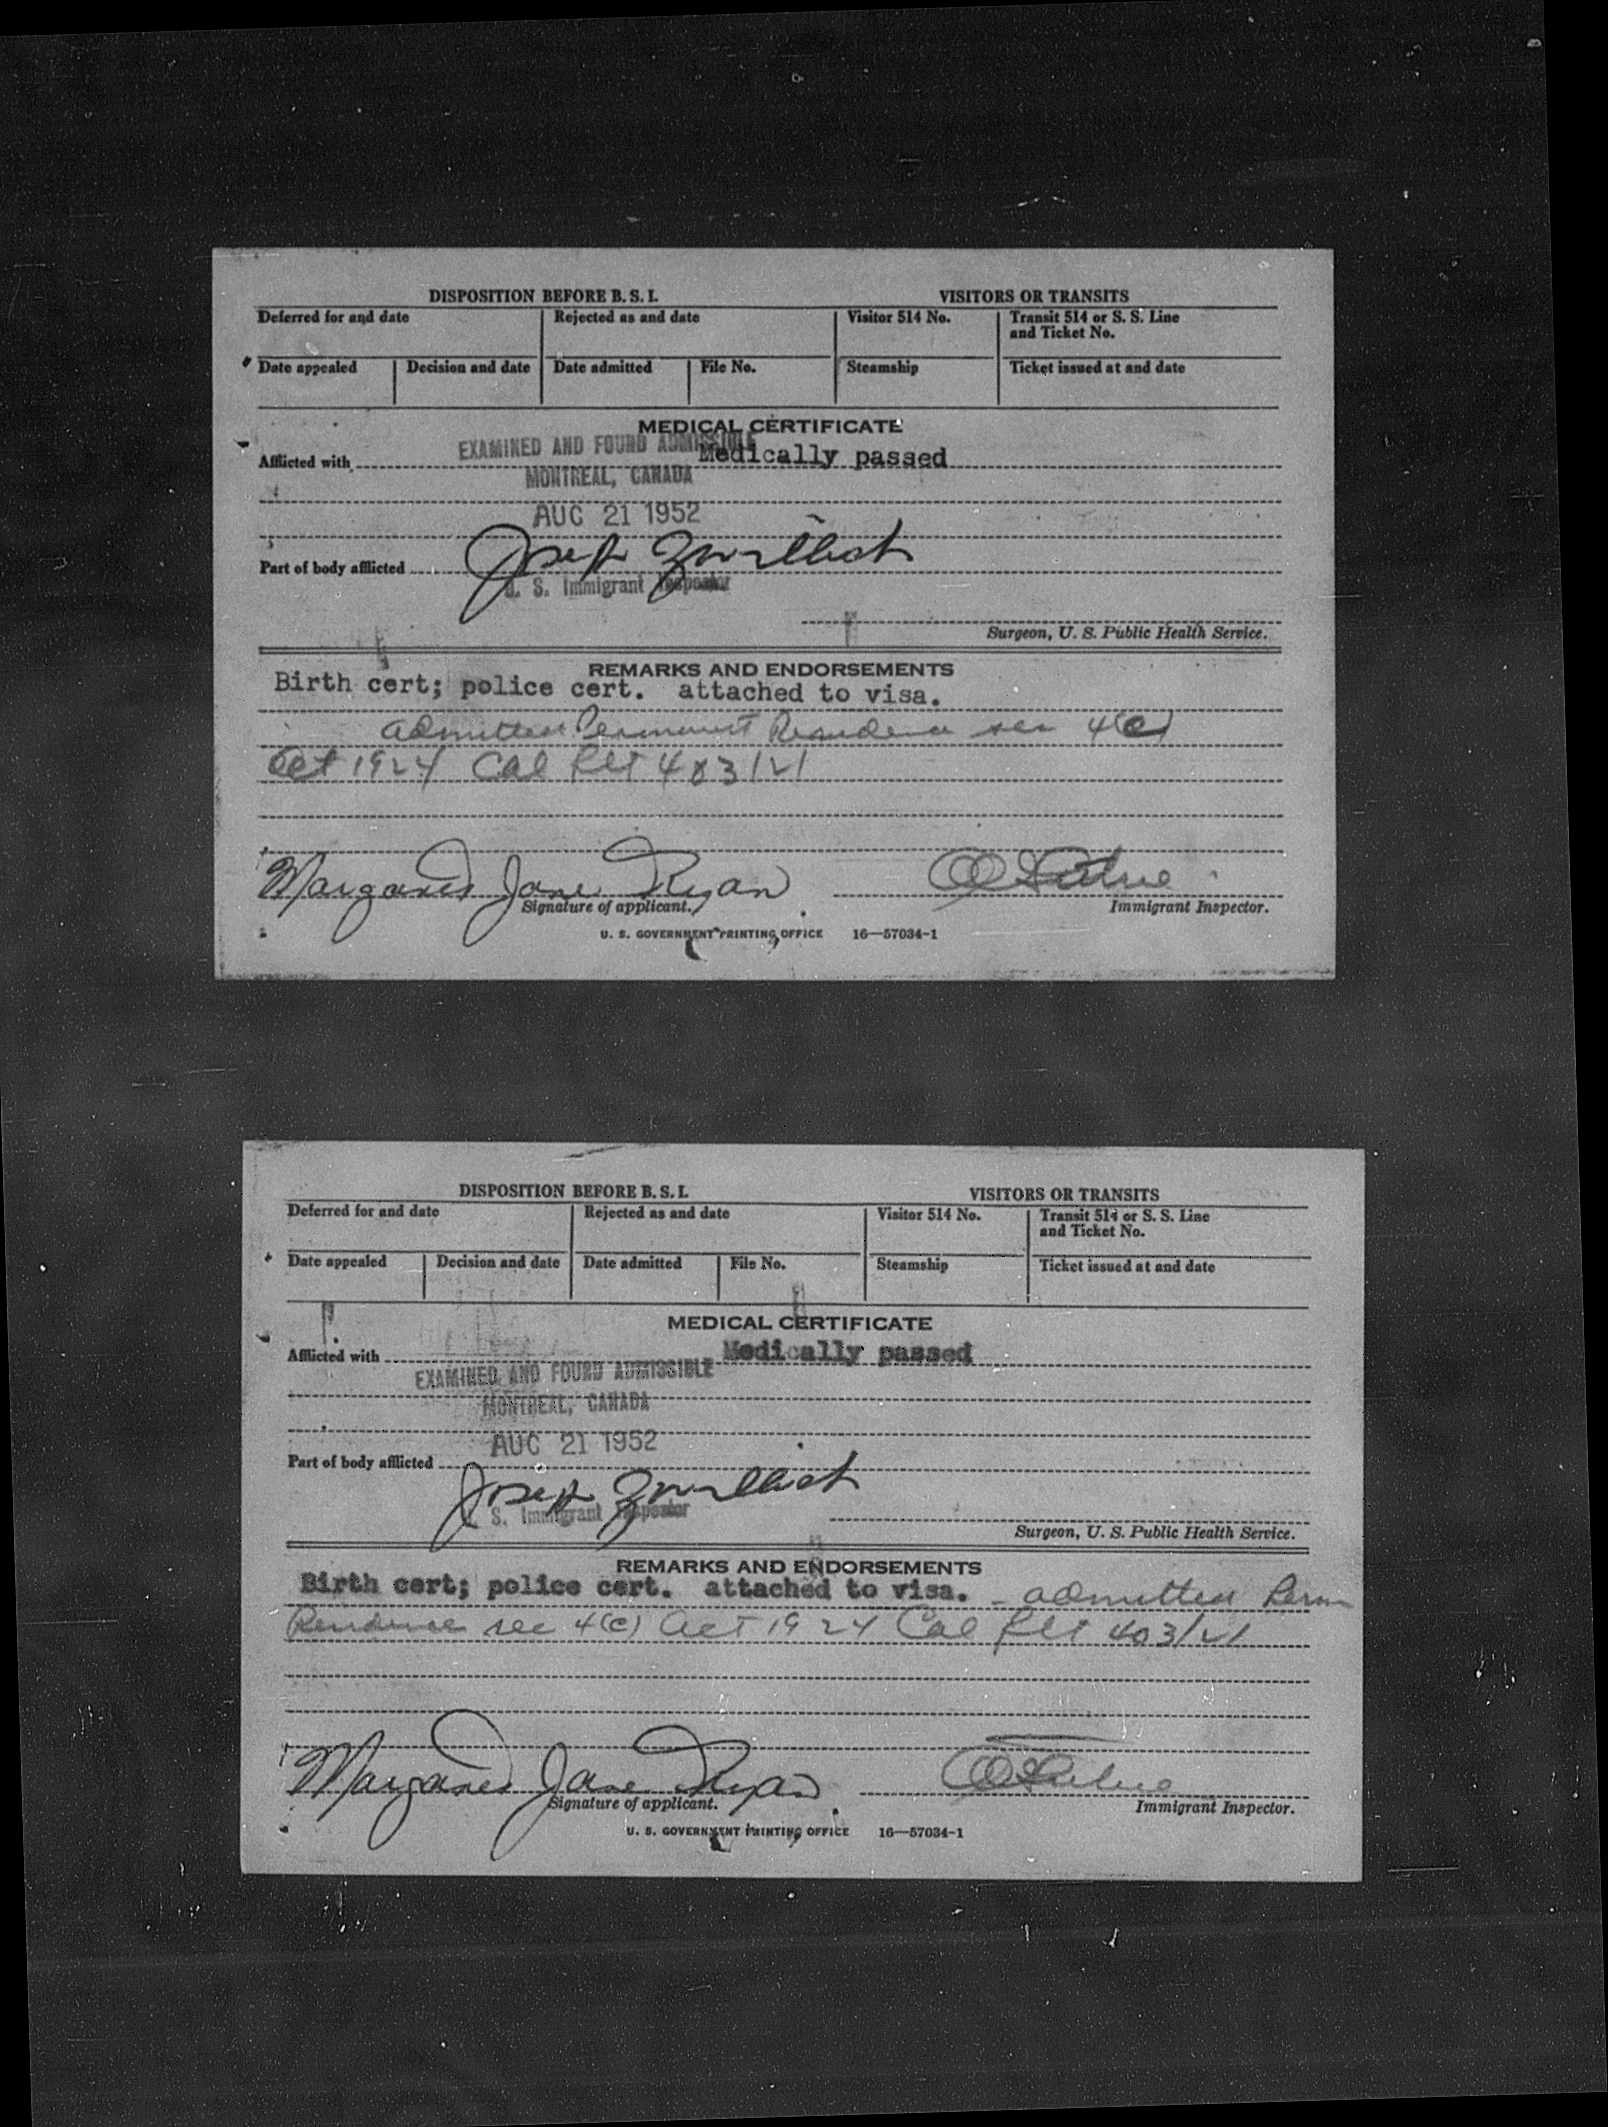 DISPOSITION BEFORE B. S. I. VISITORS OR TRANSITS
Deferred for and date Rejected as and date Visitor 514 No. Transit 514 or S. S. Line
and Ticket No.
Date appealed Decision and date Date admitted File No. Steamship Ticket issued at and date
MEDICAL CERTIFICATE
EXAMINED AND FOUND ADMISSIBLE
Afflicted with Medically passed
MONTREAL, CANADA
AUG 21 1952
Part of body afflicted Joseph
U. S. Immigrant Inspector
Surgeon, U. S. Public Health Service.
REMARKS AND ENDORSEMENTS
Birth cert; police cert. attached to visa.
admitted Permanent Residence sec 4(c)
Act 1924 Cal 403/21
Margaret Jane Ryan
Signature of applicant. Immigrant Inspector.
U. S. GOVERNMENT PRINTING OFFICE 16—57034-1
DISPOSITION BEFORE B. S. I. VISITORS OR TRANSITS
Deferred for and date Rejected as and date Visitor 514 No. Transit 514 or S. S. Line
and Ticket No.
Date appealed Decision and date Date admitted File No. Steamship Ticket issued at and date
MEDICAL CERTIFICATE
Afflicted with Medically passed
EXAMINED AND FOUND ADMISSIBLE
MONTREAL, CANADA
AUG 21 1952
Part of body afflicted
Joseph
S. Immigrant Inspector
Surgeon, U. S. Public Health Service.
REMARKS AND ENDORSEMENTS
Birth cert; police cert. attached to visa. - admitted Perm
Residence sec 4(c) Act 1924 Cal 403/21
Margaret Jane Ryan
Signature of applicant. Immigrant Inspector.
U. S. GOVERNMENT PRINTING OFFICE 16—57034-1